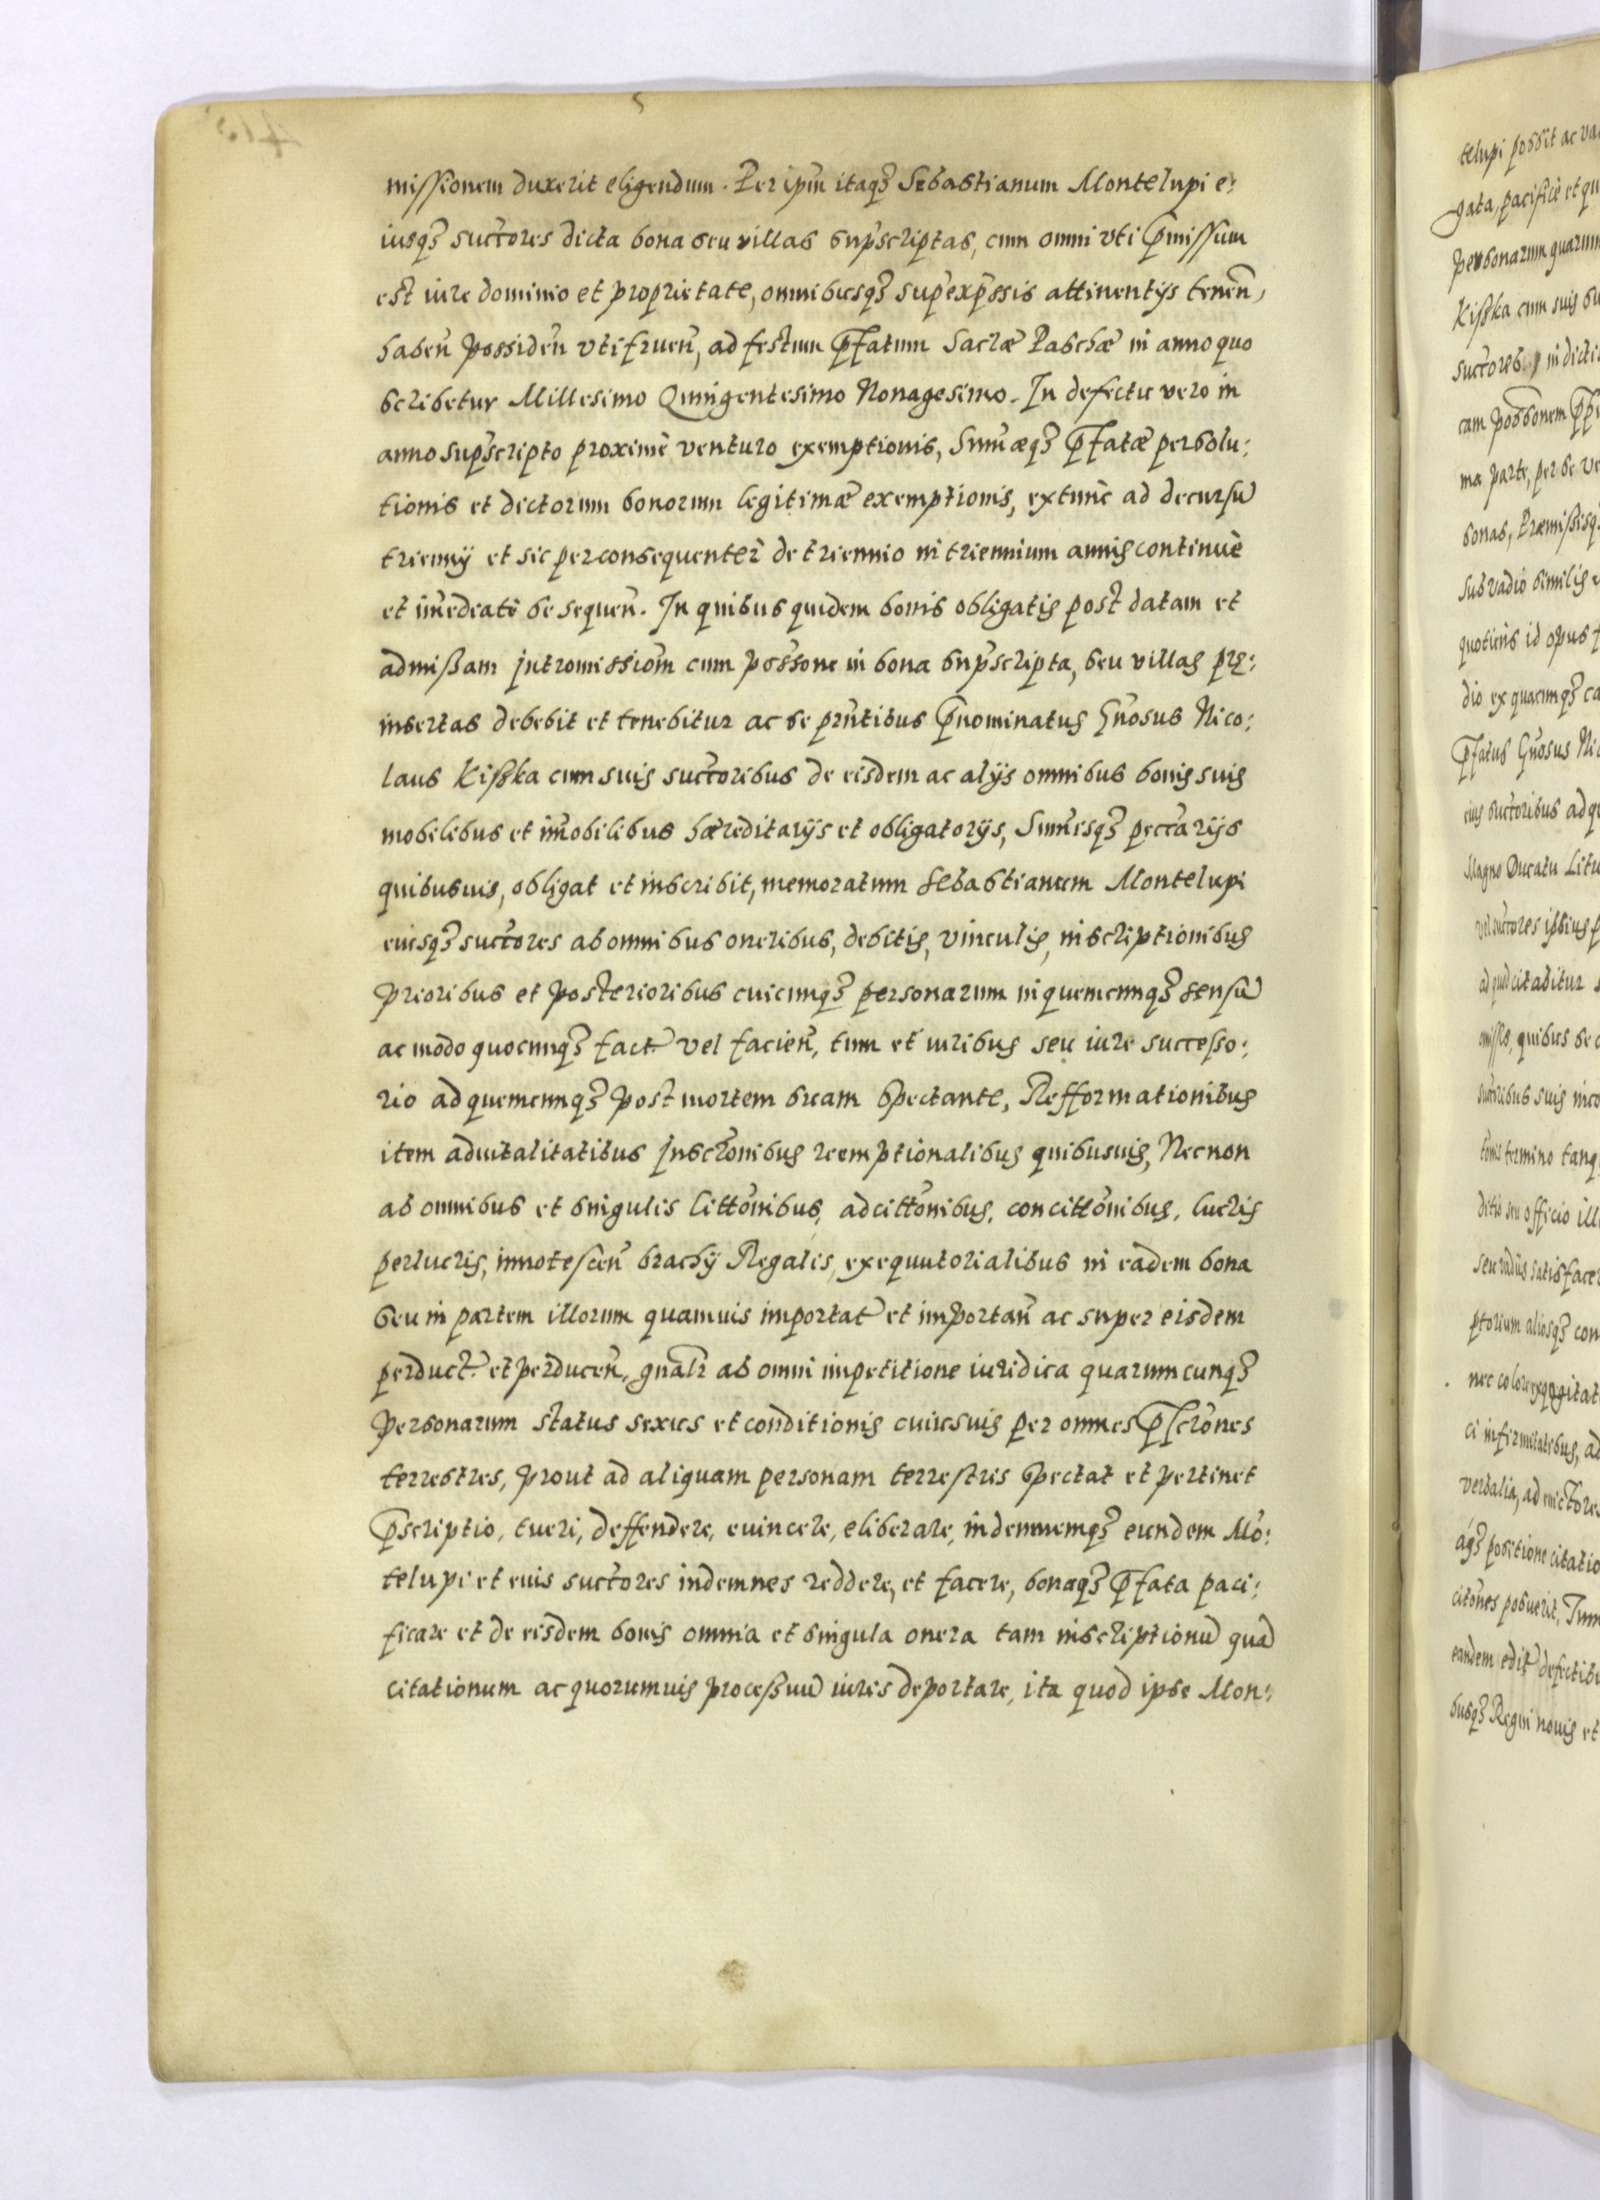 missionem duxerit eligendum. Per ipm̃ itaqȝ Sebastianum Montelupi e:
iusqȝ succ̃ores dicta bona seu villas sup̃scriptas, cum omni vti p̃missum
est iure dominio et proprietate, omnibusqȝ sup̃exp̃ssis attinentijs tenen̄,
haben̄ possiden̄ vtifruen̄, ad festum p̃fatum Sacræ Paschæ in anno quo
scribetur Millesimo Quingentesimo Nonagesimo. In defectu vero in
anno sup̃scripto proximè venturo exemptionis, Sum̃æqȝ p̃fatæ persolu:
tionis et dictorum bonorum legitimæ exemptionis, extunc ad decursū
triennij et sic per consequenter de triennio in triennium annis continuè
et im̃ediatè se sequen̄. In quibus quidem bonis obligatis post datam et
admißam Intromissiom̃ cum poss̃one in bona sup̃scripta, seu villas præ:
insertas debebit et tenebitur ac se pr̃ntibus p̃nominatus Gn̄osus Nico:
laus Kißka cum suis succ̃oribus de eisdem ac alijs omnibus bonis suis
mobilibus et im̃obilibus hæreditarijs et obligatorijs, Sum̃isqȝ pecc̃arijs
quibusuis, obligat et inscribit, memoratum Sebastianum Montelupi
eiusqȝ succ̃ores ab omnibus oneribus, debitis, vinculis, inscriptionibus
prioribus et posterioribus cuicunqȝ personarum in quemcunqȝ sensū
ac modo quocunqȝ fact̃ vel facien̄, tum et iuribus seu iure successo:
rio ad quemcunqȝ post mortem suam spectante, Refformationibus
item aduitalitatibus Inscr̃onibus reemptionalibus quibusuis, Necnon
ab omnibus et singulis citt̃onibus, adcitt̃onibus, concitt̃onibus, lucris
perlucris, innotescen̄ brachÿ Regalis, exequutorialibus in eadem bona
seu in partem illorum quamuis importat̃ et importan̄ ac super eisdem
perduct̃ et perducen̄, gn̄alr̃ ab omni impetitione iuridica quarumcunqȝ
personarum status sexus et conditionis cuiusuis per omnes p̃scr̃ones
terrestres, prout ad aliquam personam terrestris spectat et pertinet
p̃scriptio, tueri, deffendere, euincere, eliberare, indemnemqȝ eundem Mō:
telupi et eius succ̃ores indemnes reddere, et facere, bonaqȝ p̃fata paci:
ficare et de eisdem bonis omnia et singula onera tam inscriptionū quā
citationum ac quorumuis proceßuū iuris deportare, ita quod ipse Mon:
telupi possit ac
gata, pacificè et
personarum quarum
Kißka cum suis
succ̃ores in
cam poss̃onem
ma parte, per se
bonas, Præmißisqȝ
sub vadio similis
quotiens id opus
dio ex quacunqȝ
p̃fatus Gn̄osus
eius succ̃oribus
Magno Ducatu
vel succ̃ores ipsius
ad quod citabitur
omißis, quibus se
succ̃oribus suis
termino
ditis seu officio
seu vadijs
ptorium aliosqȝ
nec colore
ci infirmitatibus,
verbalia, ad
positione
posuerit,
eandem
busqȝ Regni nouis et